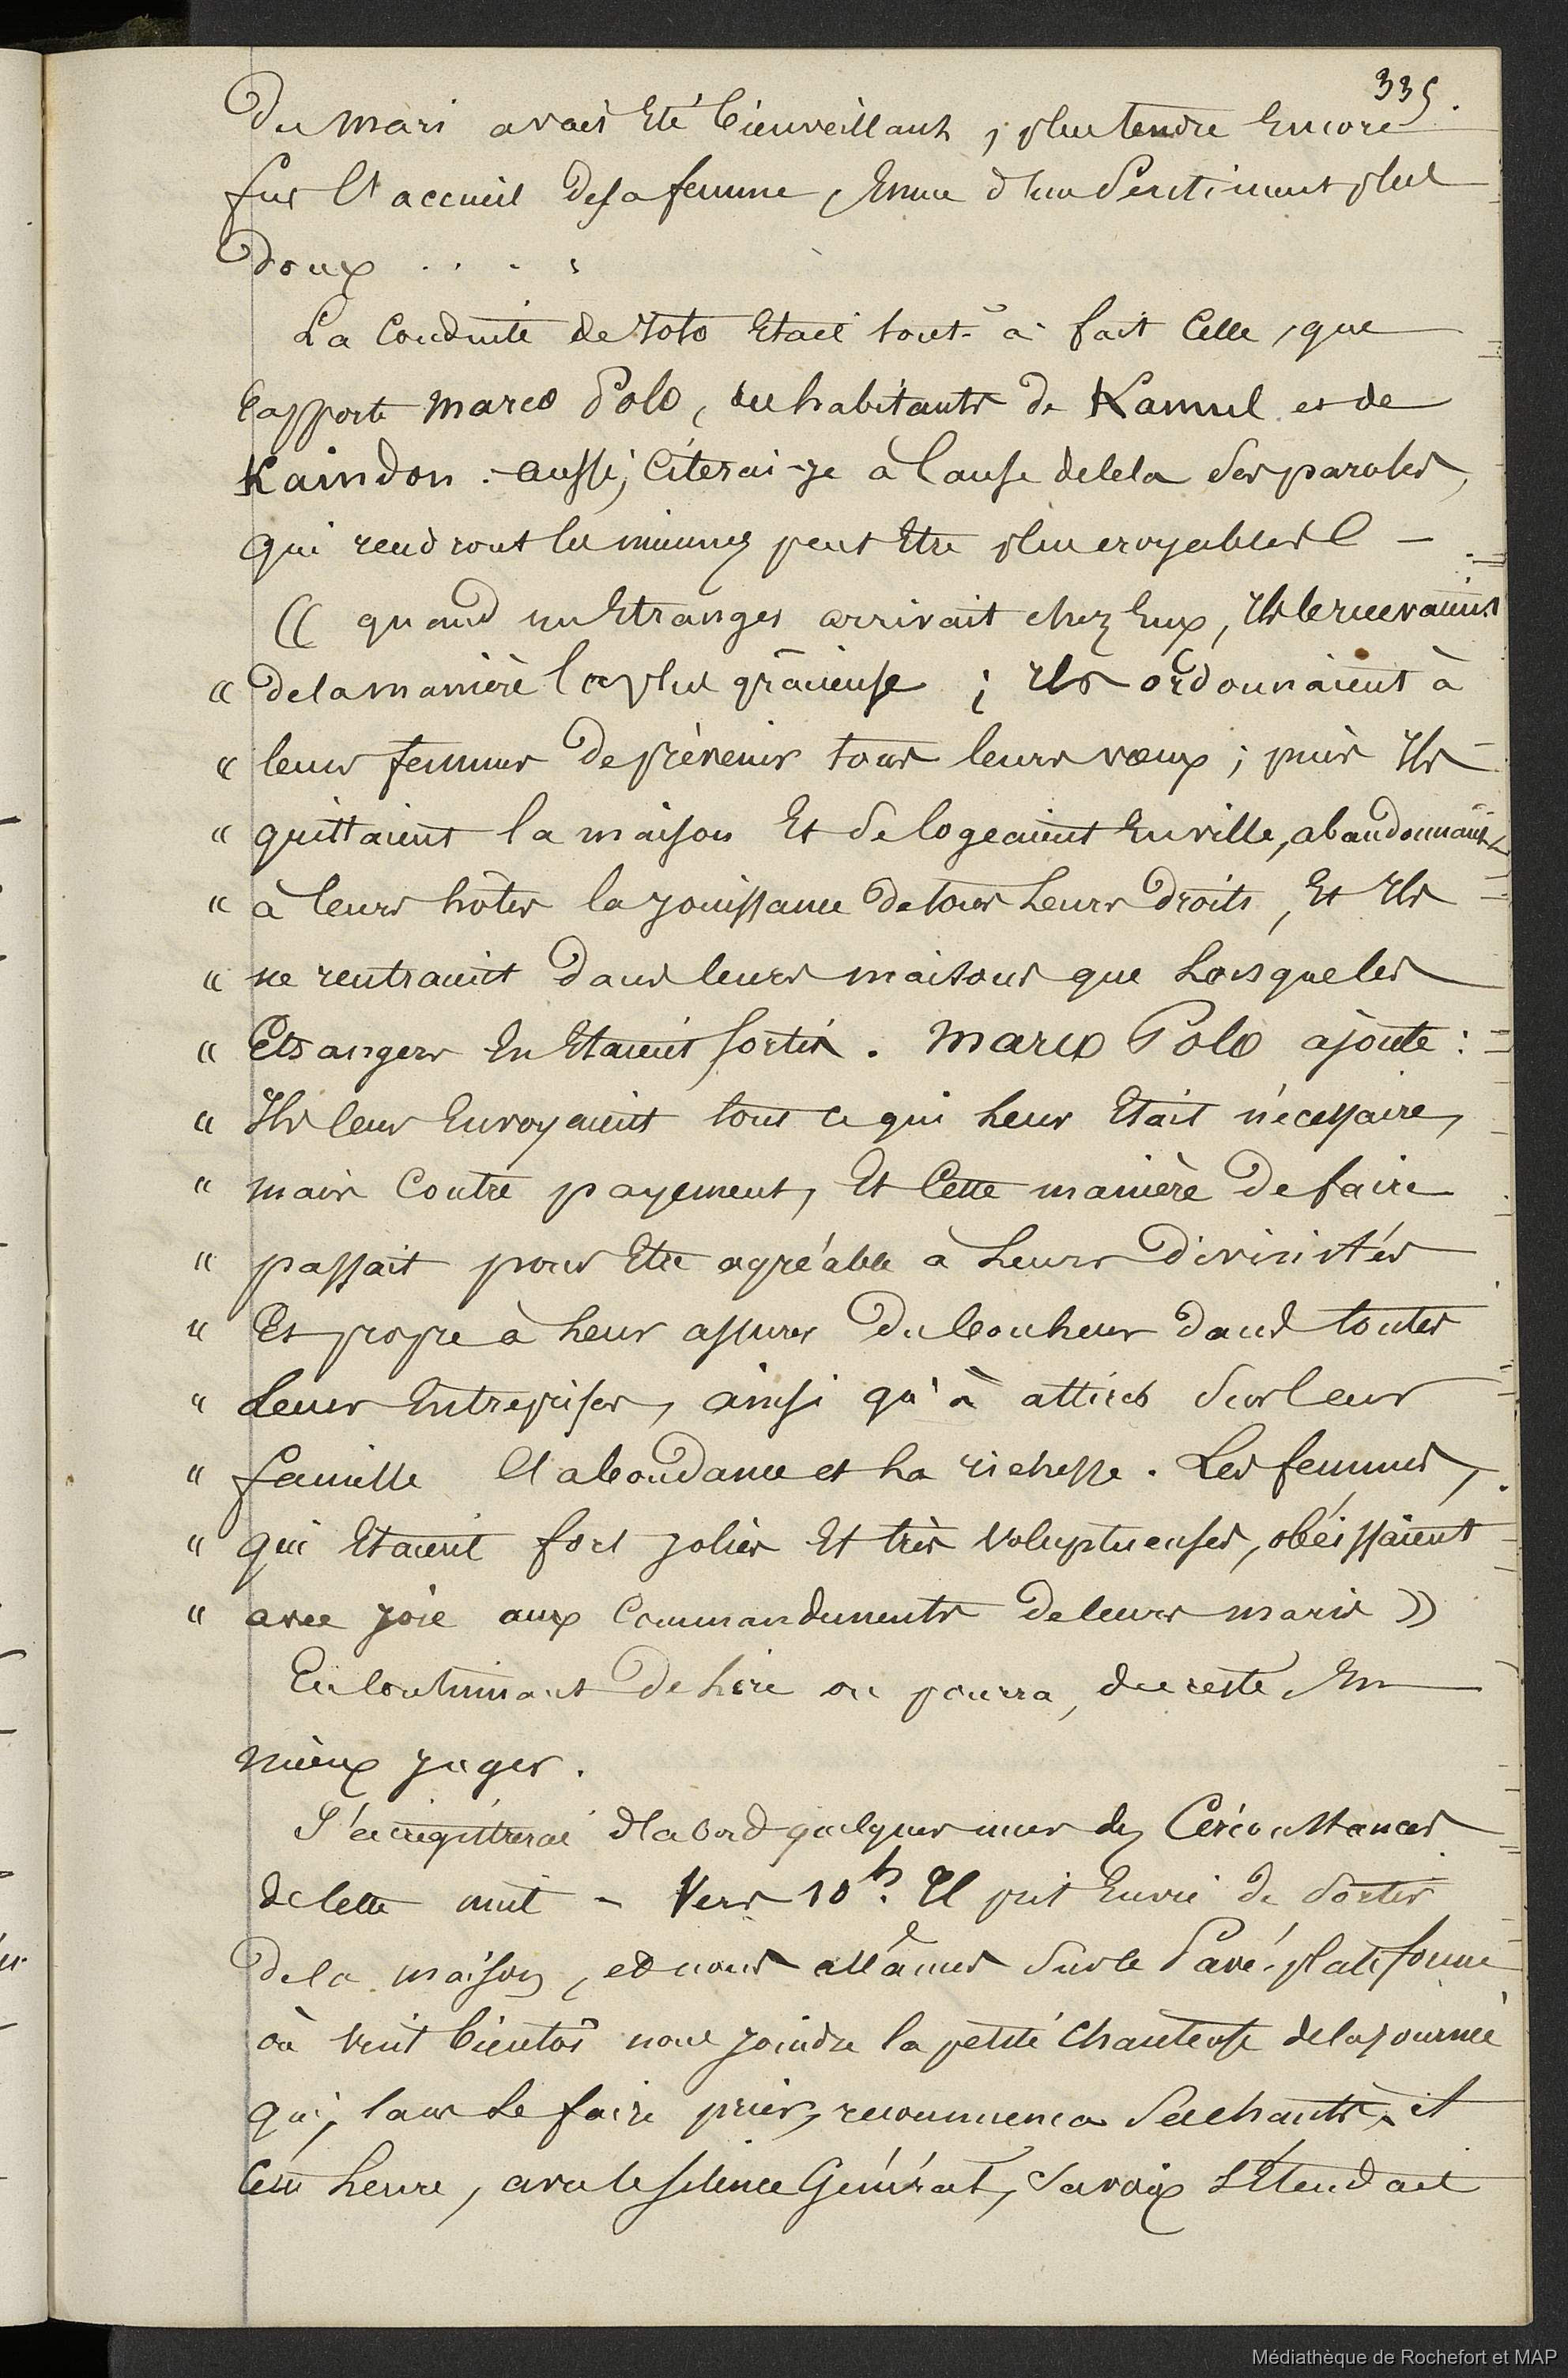 335.
Du mari avait Eté bienveillant, plus tendre Encore
fut l'accueil de sa femme, Emue d'un Sentiment plus
doux . . . .
La Conduite de Toto Etait tout-à-fait Celle, que
rapporte Marco Polo, des habitants de Kamul et de
Kaindon. - aussi, Citerai-je à Cause de cela Ses paroles,
qui rendront les miennes peut Etre plus croyables -
(( quand un Etranger arrivait chez Eux, Ils le recevaient
" de la manière la plus gracieuse ; Ils ordonnaient à
" leurs femmes De prévenir tous leurs vœux ; puis Ils
" quittaient la maison Et Se logeaient En ville, abandonnant
" à leurs hôtes la jouissance De tous Leurs Droits, Et Ils
" ne rentraient Dans leurs maisons que Lorsque les
" Etrangers En Etaient sortis. Marco Polo ajoute :
" Ils leur Envoyaient tout ce qui Leur Etait nécessaire,
" mais Contre payement, Et Cette manière De faire
" passait pour Etre agréable à Leurs Divinités
" Et propre à Leur assurer Du bonheur dans toutes
" Leurs Entreprises, ainsi qu'à attirer Sur leur
" famille l'abondance et La richesse. Les femmes,
" qui Etaient fort jolies Et très Voluptueuses, obéissaient
" avec joie aux Commandements De leurs maris ))
En Continuant De Lire on pourra, du reste, En
mieux juger.
J'enregistrerai d'abord quelques unes des Circonstances
de Cette nuit - Vers 10h. Il prit Envie de Sortir
De la maison, et nous allâmes Sur le Pavé-plateforme
où Vint bientôt nous joindre la petite Chanteuse de la journée
qui, sans Se faire prier, recommença Ses chants, et
Cette heure, avec le silence Général, Sa voix S'Etendait